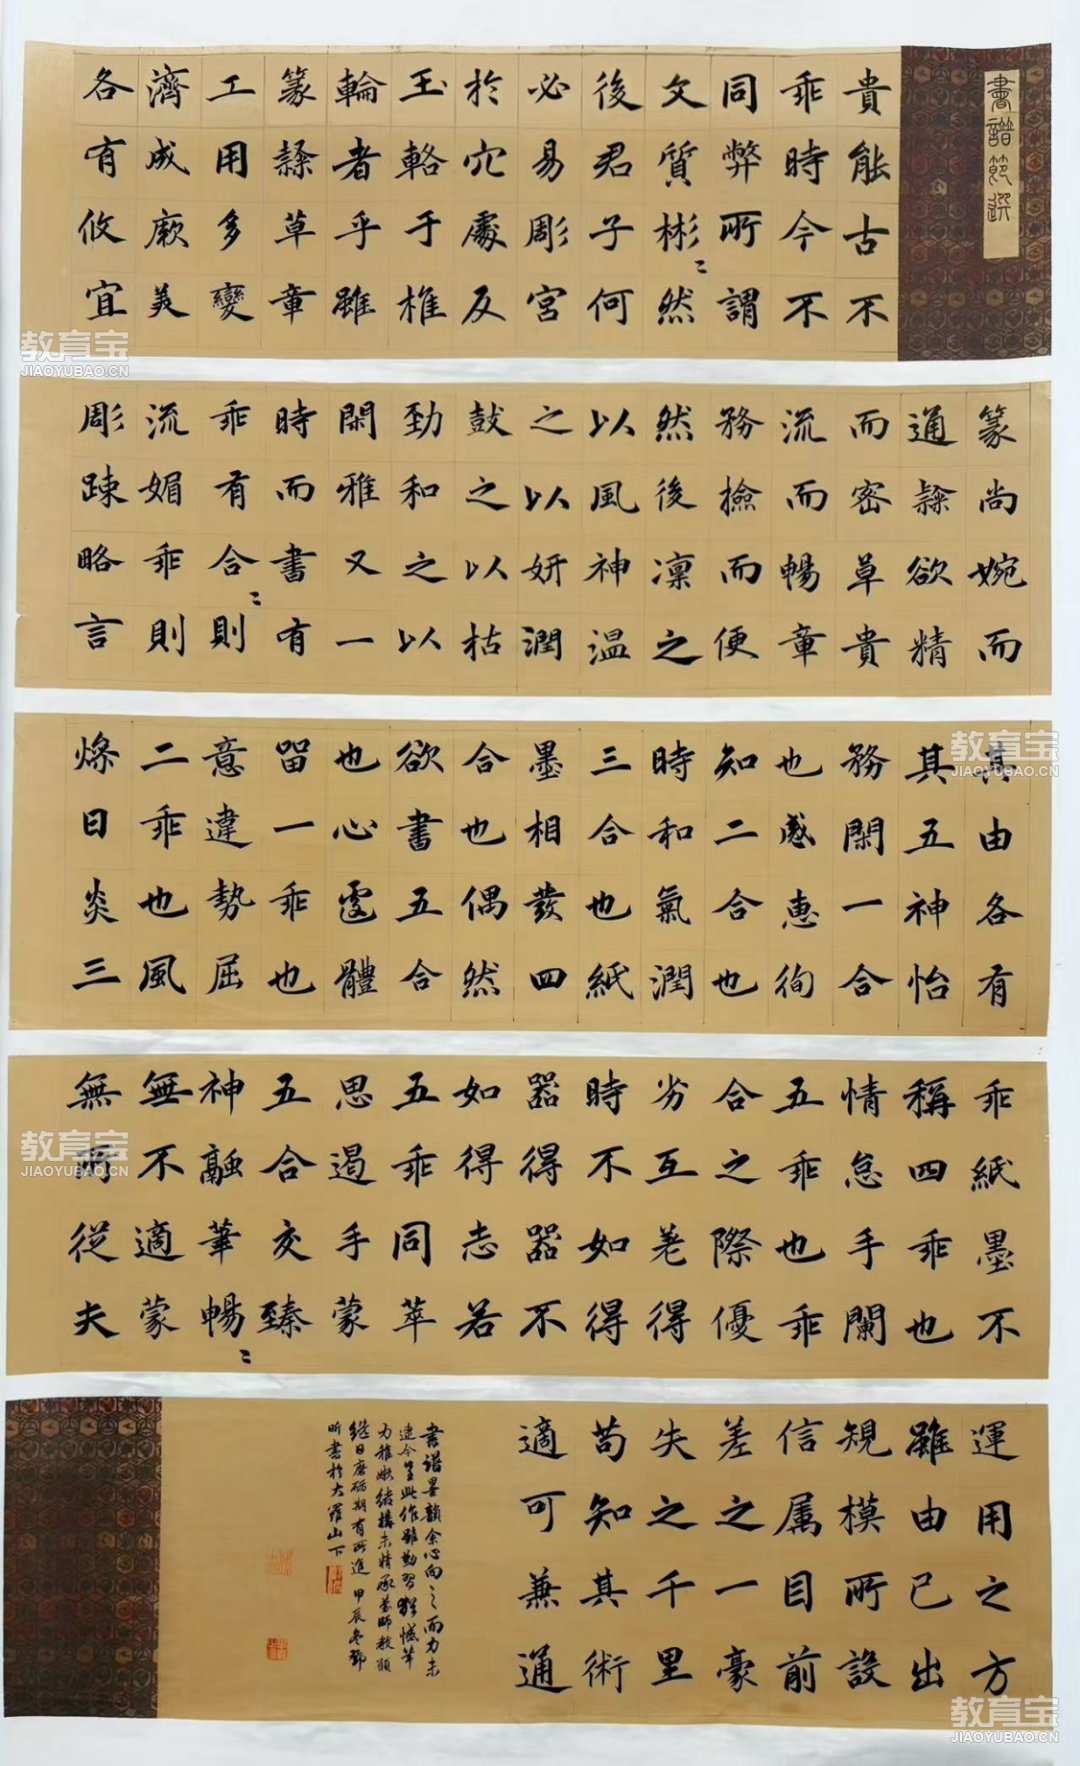 書譜節選
貴能古不
乖時今不
同弊所謂
文質彬〻然
後君子何
必易彫宮
於穴處反
玉輅于椎
輪者乎雖
篆隸草章
工用多變
濟成厥美
各有攸宜
篆尚婉而
通隸欲精
而密草貴
流而暢章
務檢而便
然後凜之
以風神溫
之以妍潤
鼓之以枯
勁和之以
閑雅又一
時而書有
乖有合〻則
流媚乖則
彫疎略言
其由各有
其五神怡
務閑一合
也感惠徇
知二合也
時和氣潤
三合也紙
墨相發四
合也偶然
欲書五合
也心遽體
留一乖也
意違勢屈
二乖也風
燥日炎三
乖紙墨不
稱四乖也
情怠手闌
五乖也乖
合之際優
劣互差得
時不如得
器得器不
如得志若
五乖同萃
思遏手蒙
五合交臻
神融筆暢〻
無不適蒙
無所從夫
運用之方
雖由己出
規模所設
信属目前
差之一豪
失之千里
苟知其術
適可兼通
书谱墨韻余心向之而力未
逮今呈此作雖勤習猶憾筆
力稚嫩结構未精承蒙師教願
继日磨砺期有所進 甲辰冬鄧
昕書於大羅山下
教育宝
JIAOYUBAO.CN
教育宝
JIAOYUBAO.CN
教育宝
JIAOYUBAO.CN
教育宝
JIAOYUBAO.CN